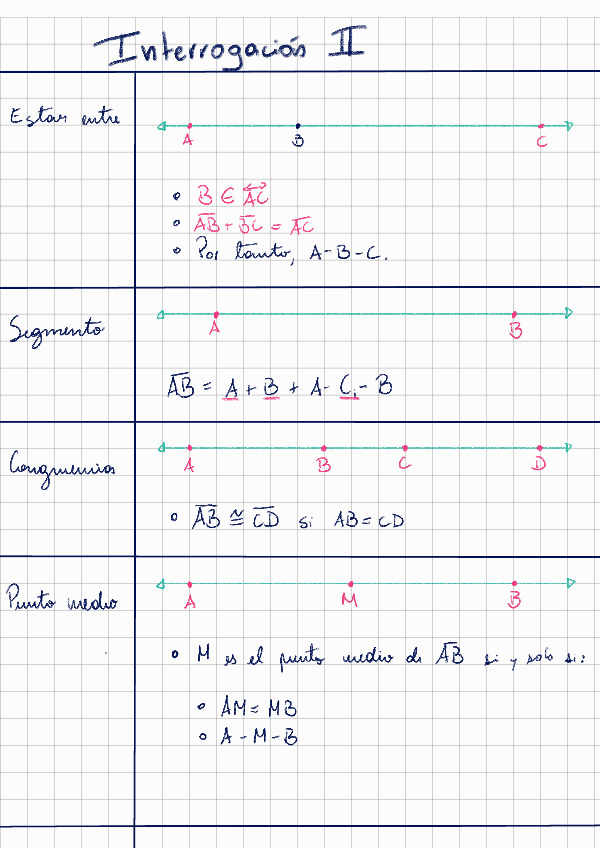 Interrogación II
Estar entre
A B C
• B ∈ A͞C⃡
• A̅B̅ + B̅C̅ = A̅C̅
• Por tanto, A-B-C.
Segmento
A B
A̅B̅ = A + B + A-C₁-B
Congruencias
A B C D
• A̅B̅ ≅ C̅D̅ si AB = CD
Punto medio
A M B
• M es el punto medio de A̅B̅ si y solo si:
• AM = MB
• A-M-B